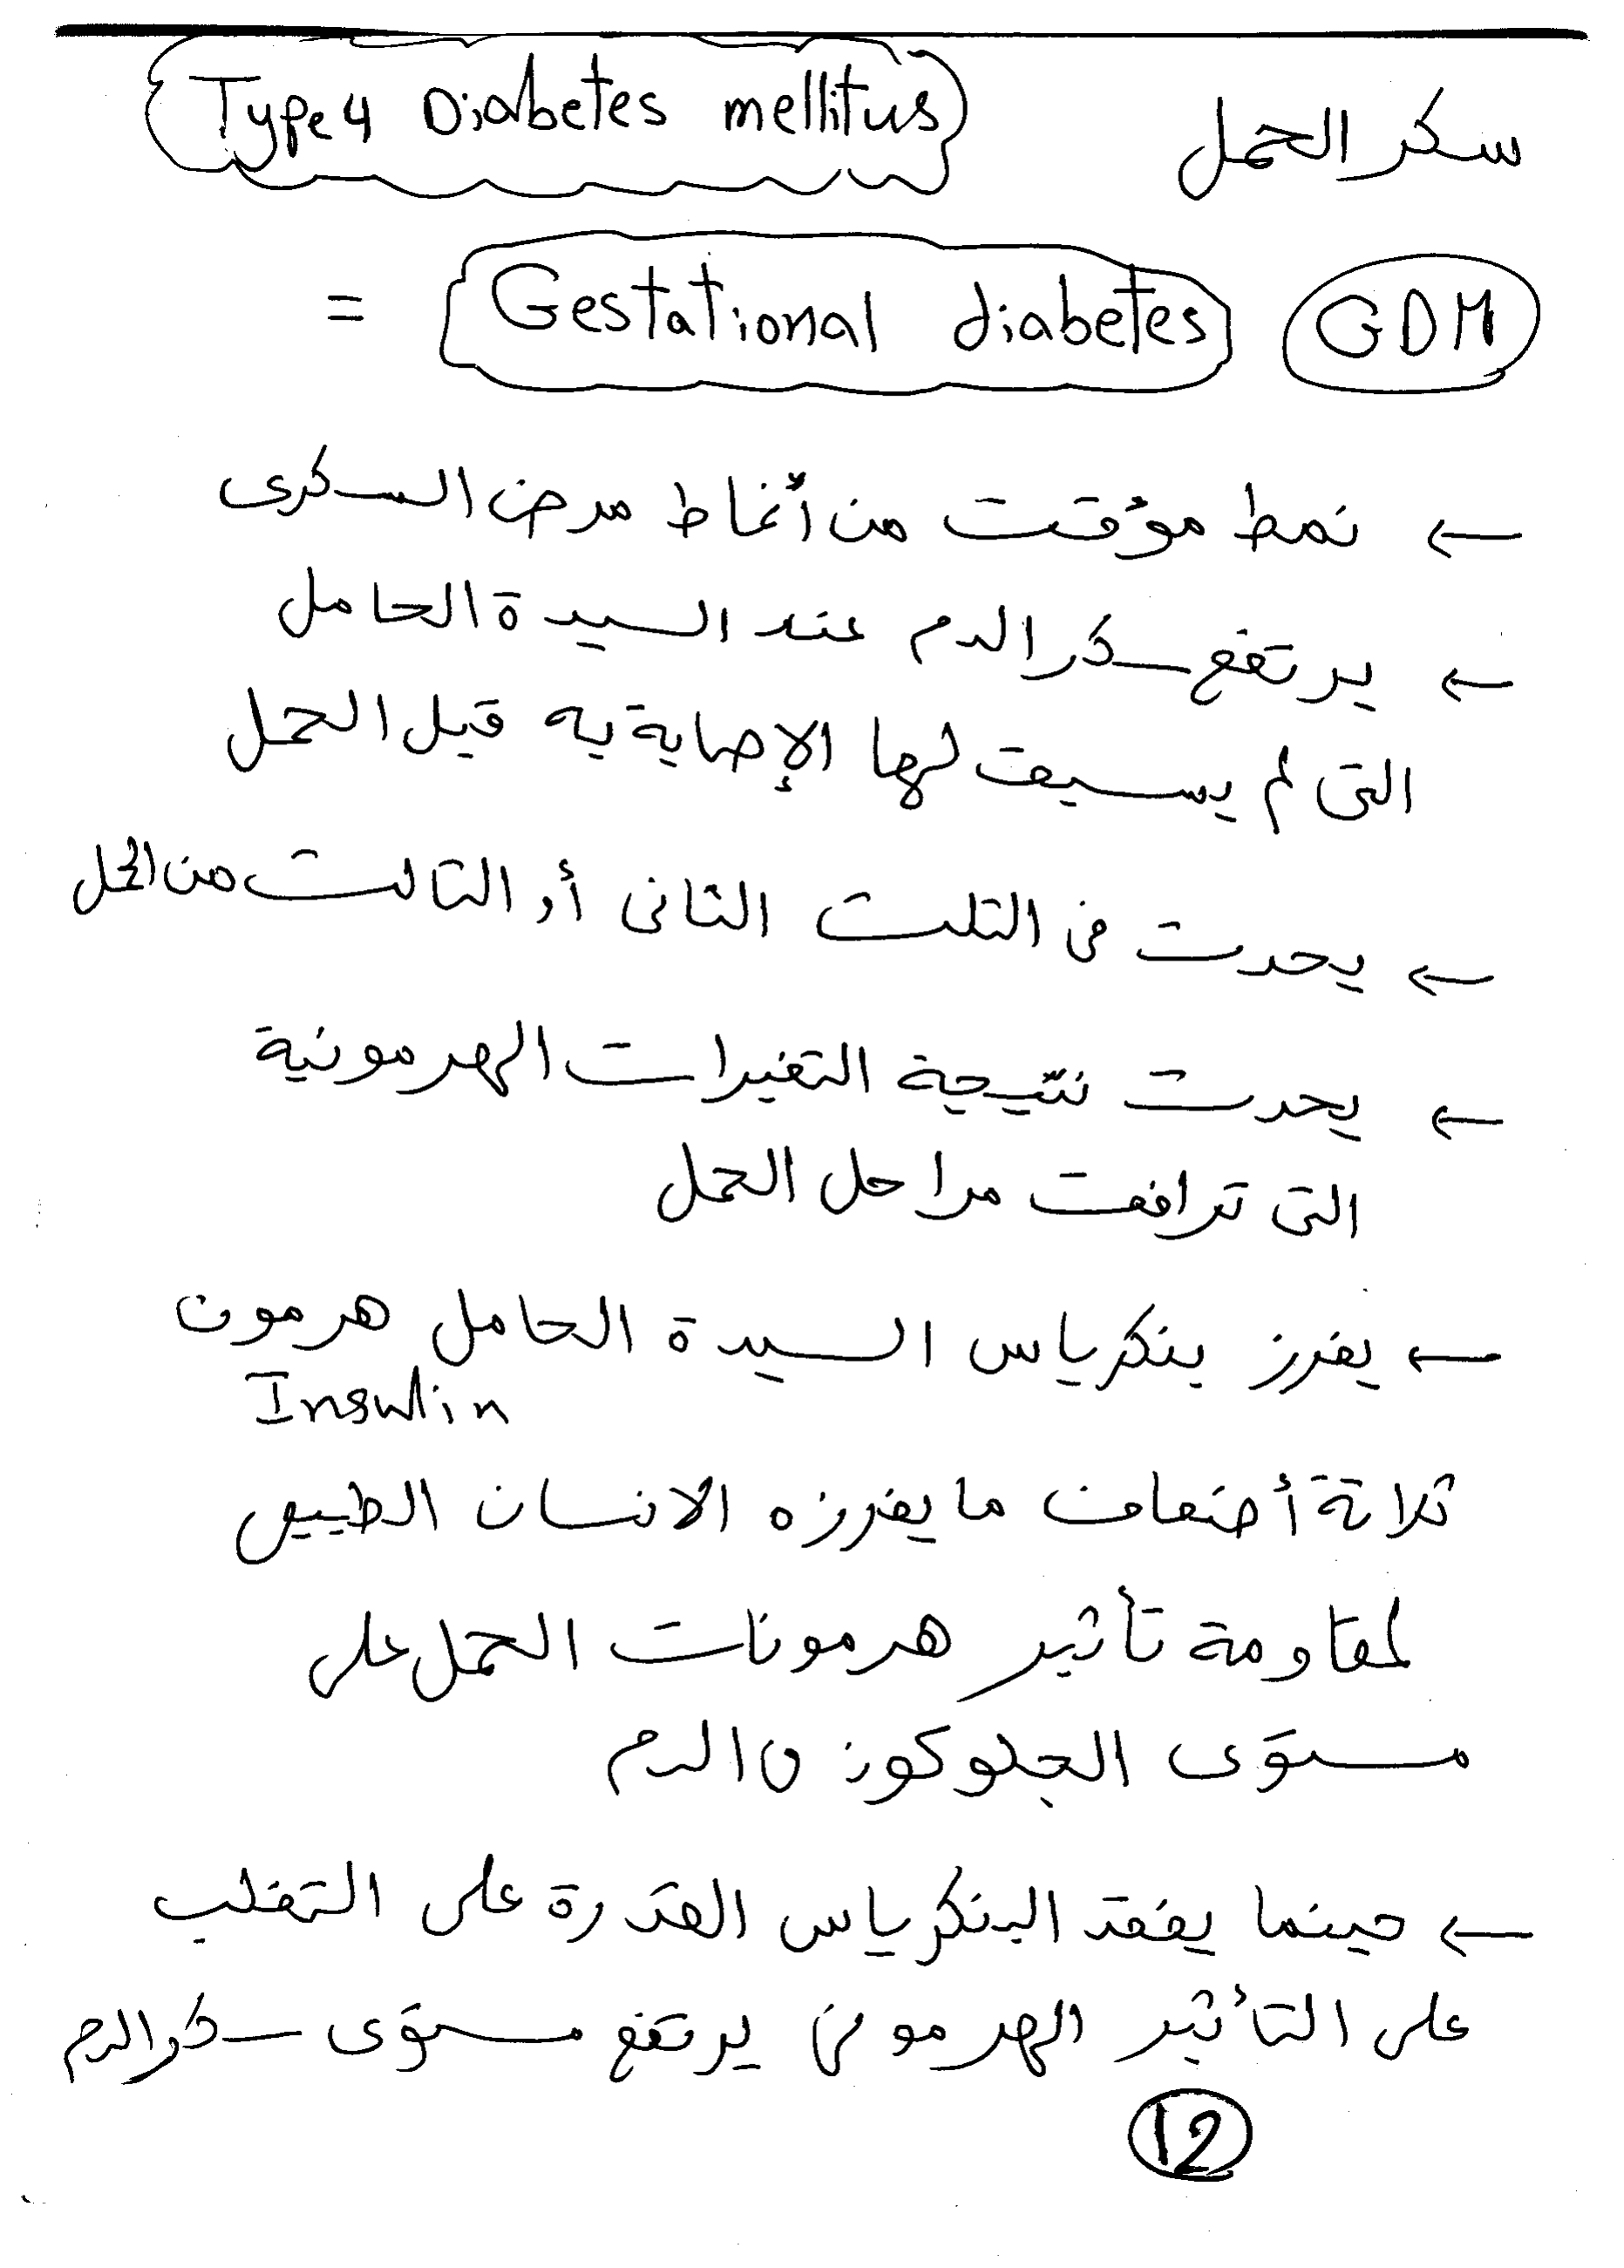 سكر الحمل Type 4 Diabetes mellitus
GDM Gestational diabetes =
← نمط مؤقت من أنماط مرض السكرى
← يرتفع سكر الدم عند السيدة الحامل
التى لم يسبق لها الإصابة به قبل الحمل
← يحدث فى الثلث الثانى أو الثالث من الحمل
← يحدث نتيجة التغيرات الهرمونية
التى ترافق مراحل الحمل
← يفرز بنكرياس السيدة الحامل هرمون
Insulin
ثلاثة أضعاف ما يفرزه الانسان الطبيعى
لمقاومة تأثير هرمونات الحمل على
مستوى الجلوكوز فى الدم
← حينما يفقد البنكرياس القدرة على التغلب
على التأثير الهرمونى يرتفع مستوى سكر الدم
12